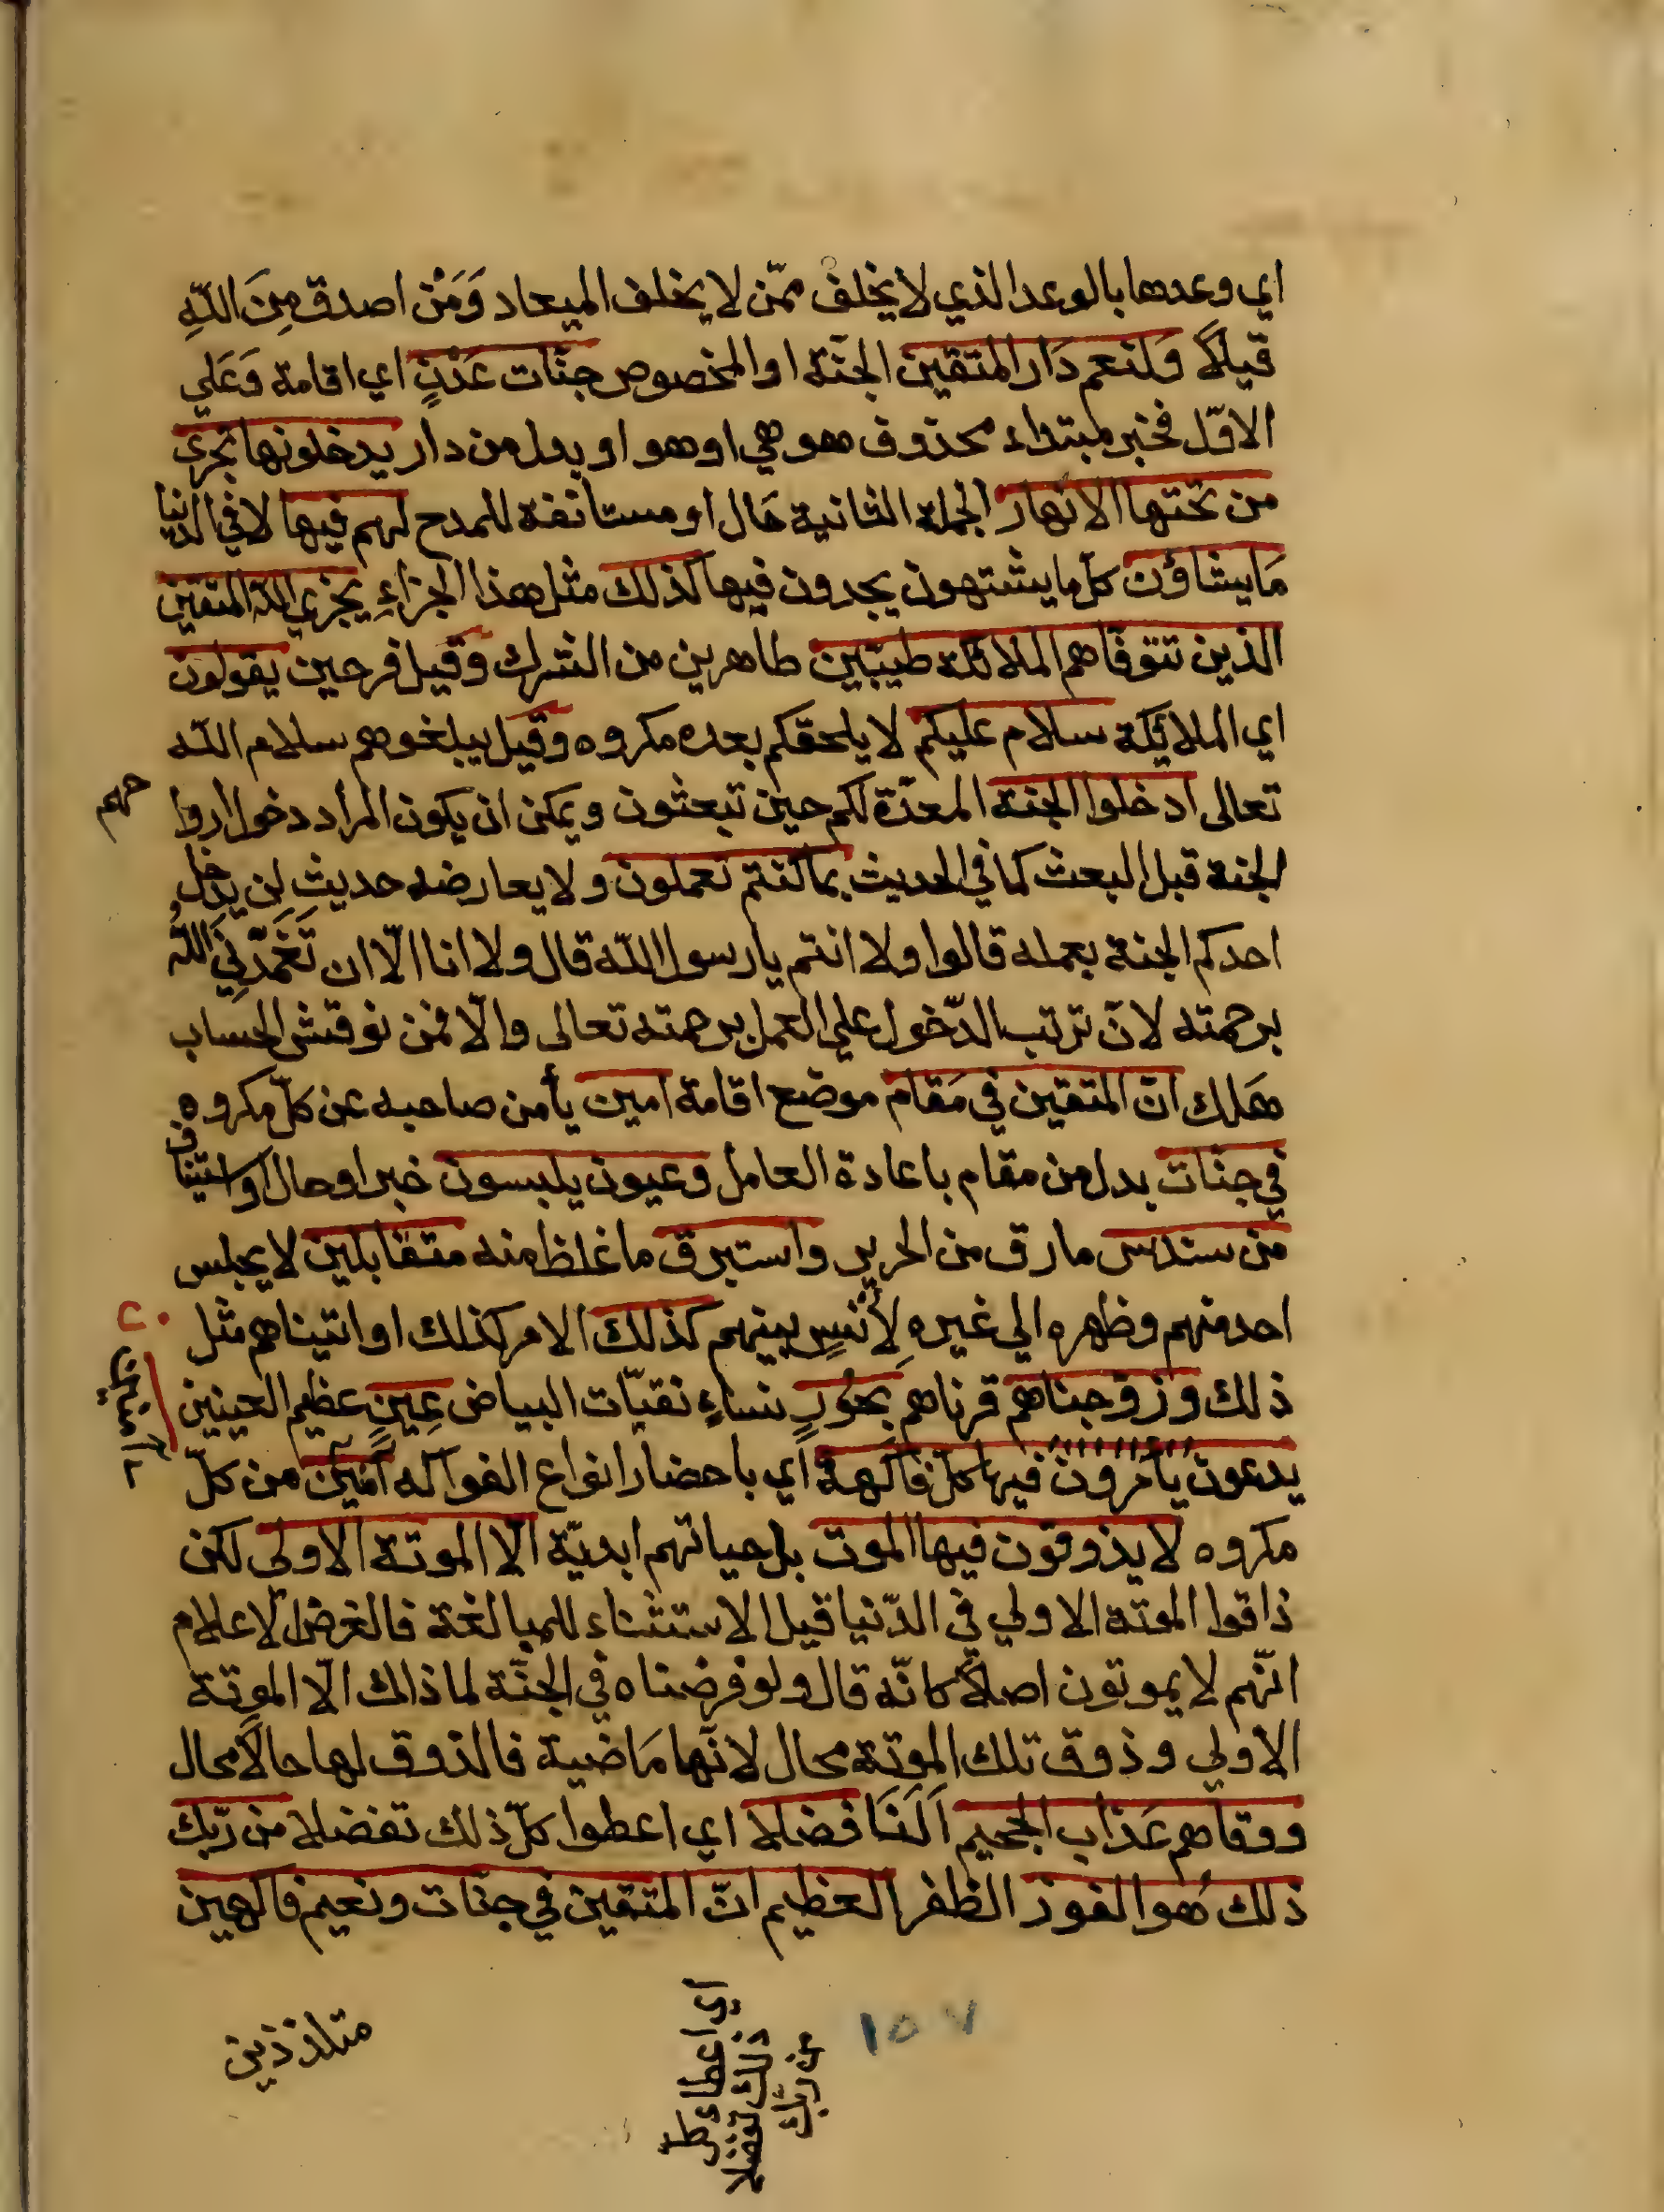 اي وعدها بالوعد الذي لا يخلف ممّن لا يخلف الميعاد وَمَنْ اصدق مِنَ اللّهِ
قيلاً وَلنعم دَار المتقين الجنّة او المخصوص جنّات عَدْنٍ اي اقامة وَعَلي
الاوّل فخبر مبتداء محذوف هو هي او هو او بدل من دار يدخلونها تجري
من تحتها الانهار الجملة الثانية حَال او مستانفة للمدح لهم فيها لا في الدنيا
مَا يشاؤن كلّ ما يشتهون يجدون فيها كذلك مثل هذا الجزاءِ يجزي اللّه المتقين
الذين تتوفّاهم الملائكة طيّبين طاهرين من الشرك وقيل فرحين يقولون
اي الملائِكة سلام عليكم لا يلحقكم بعده مكروه وقيل يبلغوهم سلام اللّه
تعالى ادخلوا الجنة المعدّة لكم حين تبعثون ويمكن ان يكون المراد دخول ارواحهم
الجنة قبل البعث كما في الحديث بما كنتم تعملون ولا يعارضه حديث لن يدخل
احدكم الجنة بعمله قالوا ولا انتم يا رسول اللّه قال ولا انا الّا ان تَغَمَّدَنِيَ اللّهُ
برحمته لانّ ترتب الدّخول علي العمل برحمته تعالى والّا فمن نوقش الحساب
هَلك انّ المتقين في مَقام موضع اقامة امين يأمن صاحبه عن كلّ مكروه
في جنّات بدل من مقام باعادة العامل وعيون يلبسون خبر او حال او استيناف
من سندس ما رق من الحرير واستبرق ما غلظ منه متقابلين لا يجلس
احد منهم وظهره الي غيره لِأُنسٍ بينهم كذلك الامر كذلك او اتيناهم مثل
ذلك وزوجناهم قرناهم بحُورٍ نساءٍ نقيّات البياض عِينٍ عظيم العينين
يدعون يأمرون فيها كلّ فاكهة اي باحضار انواع الفواكه آمنين من كلّ
مكروه لا يذوقون فيها الموت بل حياتهم ابديّة الّا الموتة الاولى لكن
ذاقوا الموتة الاولي في الدّنيا قيل الاستثناء للمبالغة فالغرض الاعلام
انّهم لا يموتون اصلاً كانّه قال ولو فرضناه في الجنّة لما ذاك الّا الموتة
الاولي وذوق تلك الموتة محال لانّها مَاضية فالذوق لها حالاً محال
ووقاهم عَذاب الجحيم فضلا اي اعطوا كلّ ذلك تفضلا من ربّك
ذلك هُو الفوز الظفر العظيم انّ المتقين في جنّات ونعيم فاكهين
متلذذين
اي اعطا كل
ذلك تفضلا
من ربّك
١٥٧